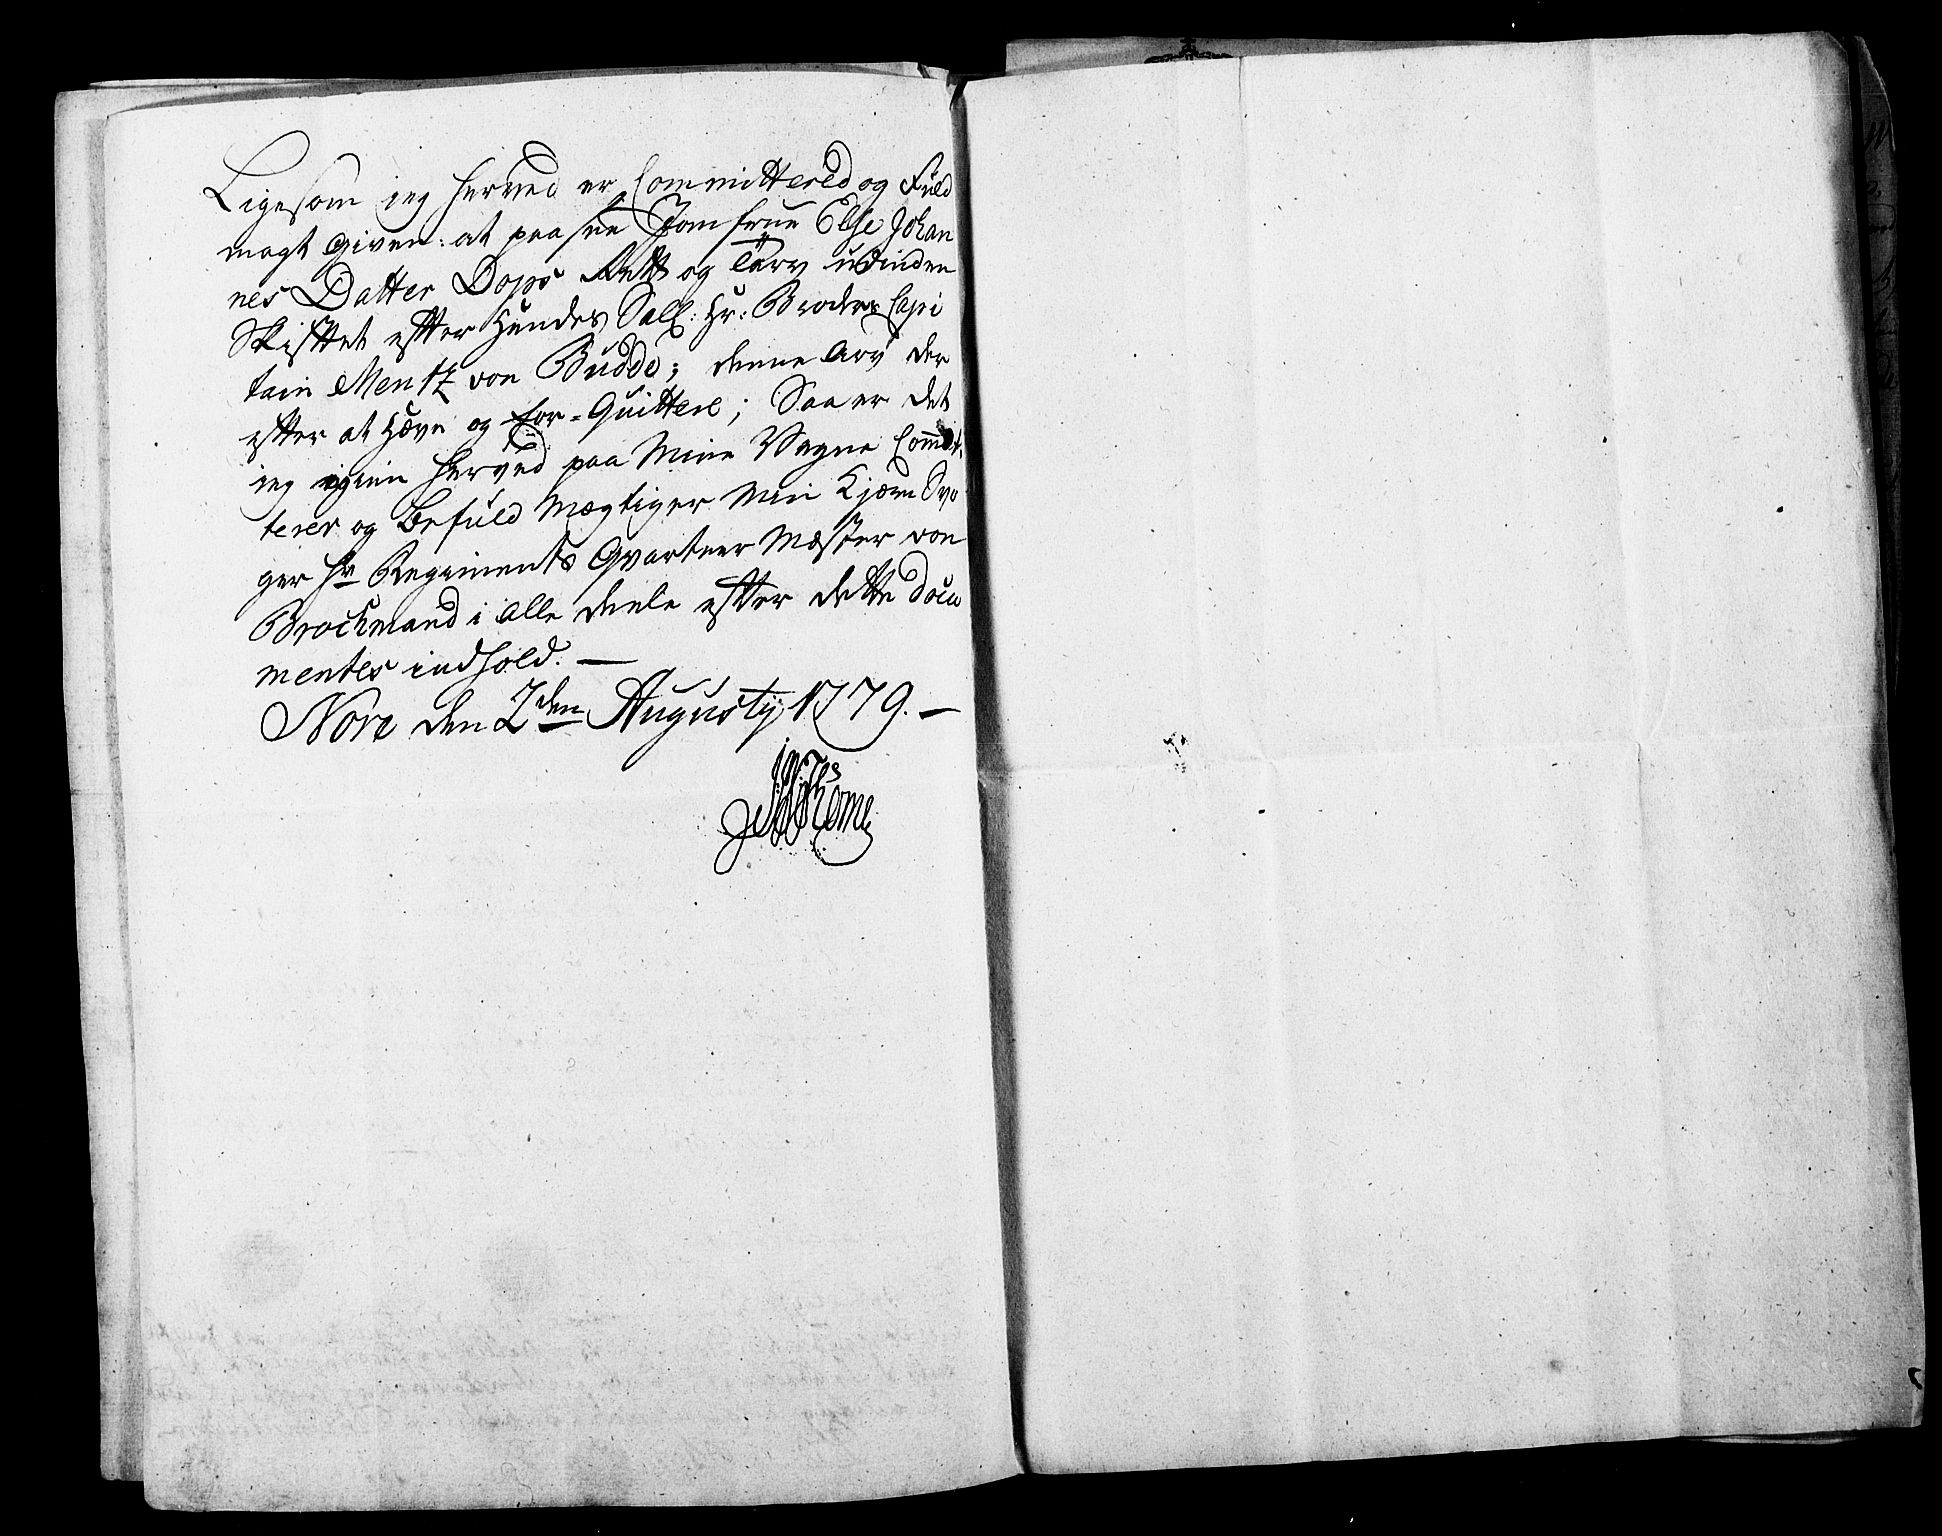 Ligesom jeg herved er Committered og Fuld
magt given: at paa see Jomfrue Else Johan
nes Datter Dops Rett og Tarv udinden
Skifttet efter Hendes Sall: Hr: Broder Capi
tain Mentz von Budde; denne Arv der
efter at Hæve og for-Quittere; Saa er det
jeg igien herved paa Mine Vegne Commit,
terer og Befuld Mægtiger Min Kjære Svo
ger Hr Regiments Qvarteer Mæster von
Brochmand i alle deele efter dette docu
mentes indhold. —
Nore den 2den Augusty 1779. —